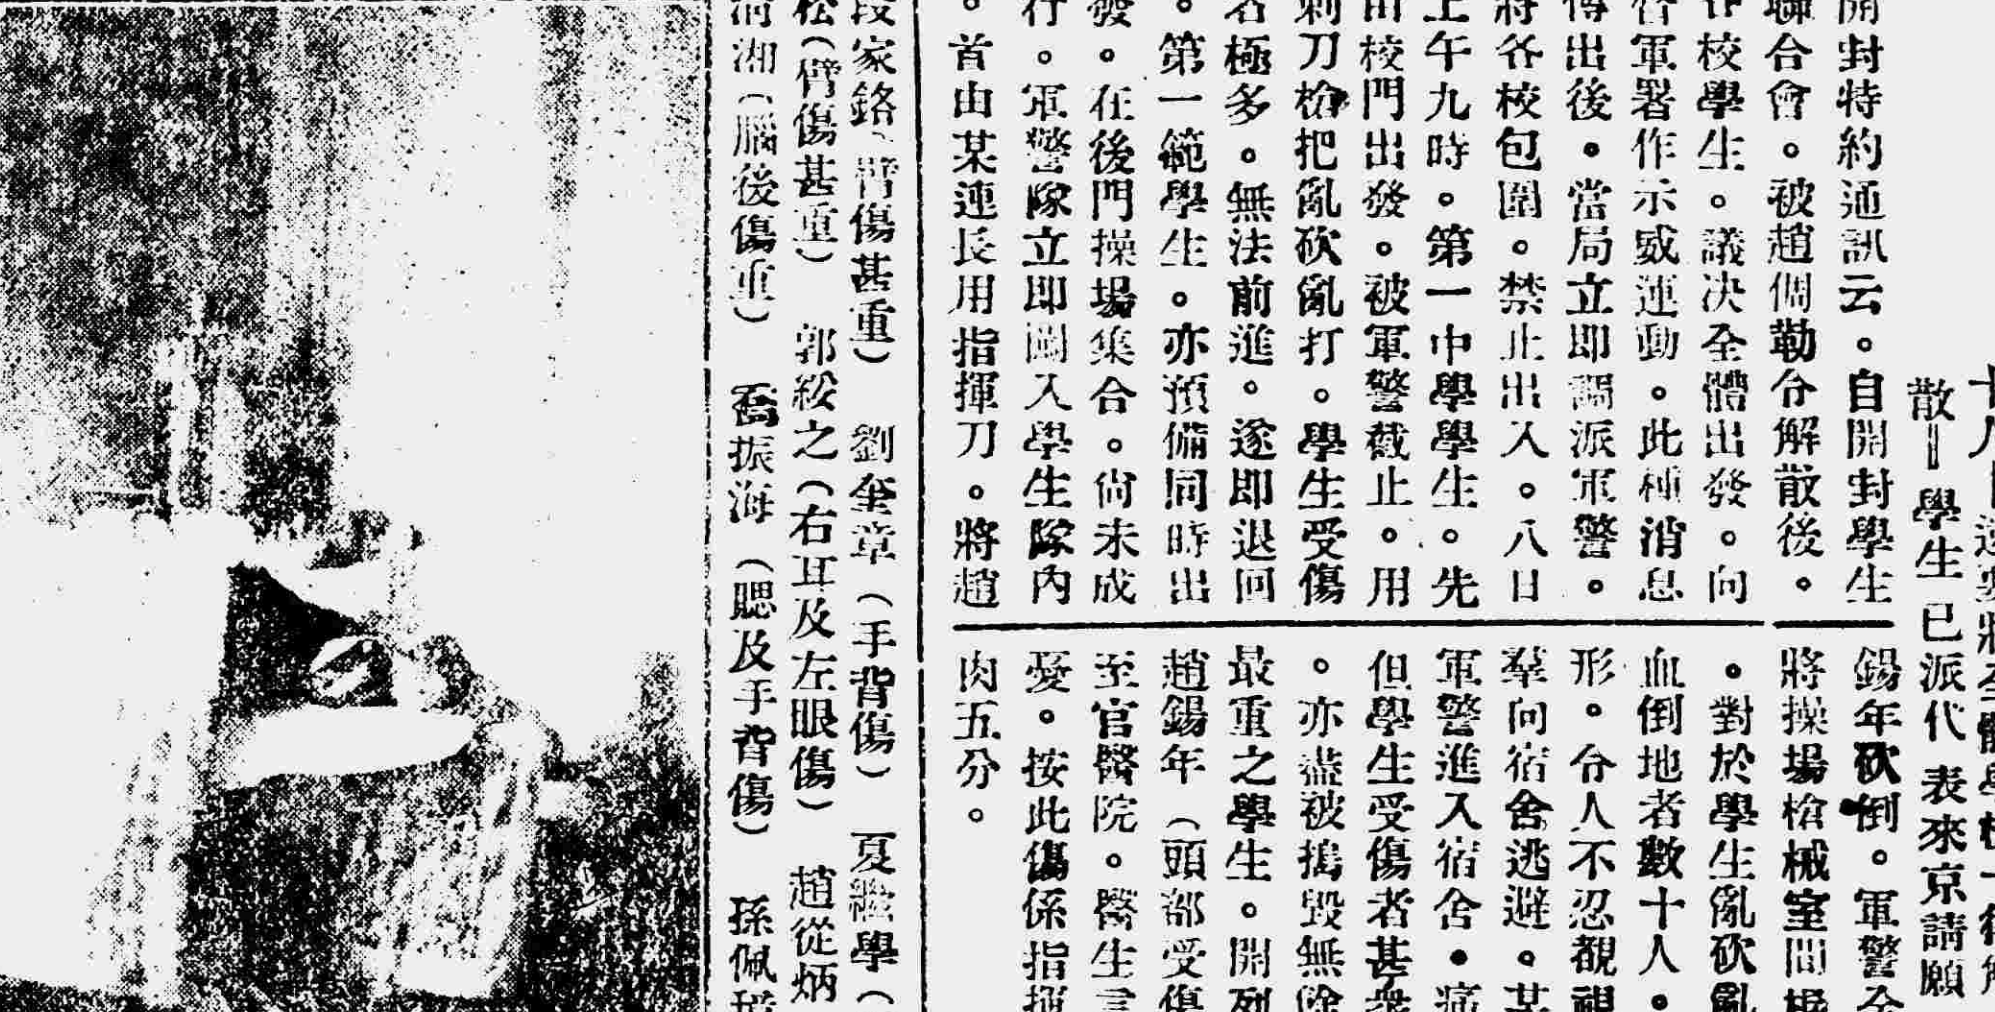 散━學生已派代表來京請願
開封特約通訊云。自開封學生
聯合會。被趙倜勒令解散後。
校學生。議决全體出發。向
督軍署作示威運動。此種消息
傳出後。當局立即調派軍警。
將各校包圍。禁止出入。八日
上午九時。第一中學學生。先
由校門出發。被軍警截止。用
刺刀槍把亂砍亂打。學生受傷
名極多。無法前進。遂即退回
。第一範學生。亦預備同時出
發。在後門操場集合。尙未成
行。軍警隊立即闖入學生隊內
。首由某連長用指揮刀。將趙
錫年砍倒。軍警
將操場槍械室間
。對於學生亂砍亂
血倒地者數十人。
形。令人不忍覩
羣向宿舍逃避。某
軍警進入宿舍。痛
但學生受傷者甚衆
。亦盡被搗毀無
最重之學生。開列
趙錫年（頭部受傷
至官醫院。醫生言
憂。按此傷係指揮
肉五分。
段家銘（臂傷甚重）　劉奎章（手背傷）　夏繼學（
松（臂傷甚重）　郭綏之（右耳及左眼傷）　趙從炳
湘（腦後傷重）　喬振海（腮及手背傷）　孫佩